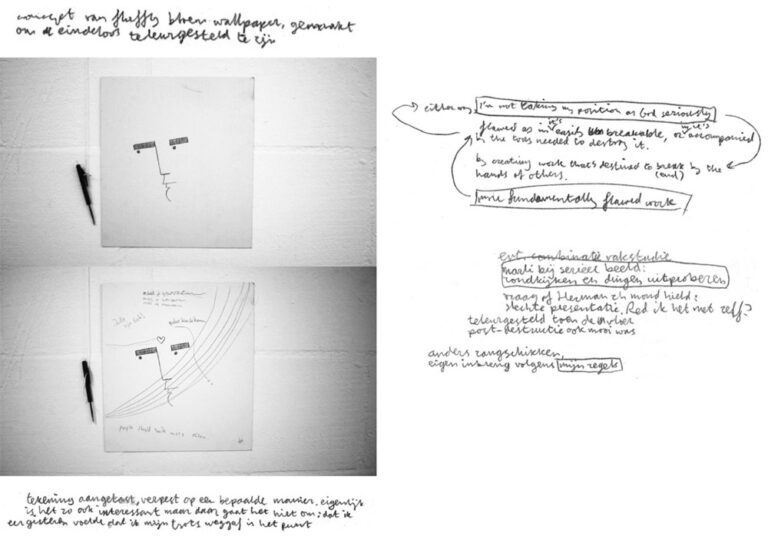 concept van fluffy bloem wallpaper, gemaakt
om de eindeloos teleurgesteld te zijn
people should smile more often
tekening aangetast, verpest op een bepaalde manier. eigenlijk
is het zo ook interessant maar daar gaat het niet om: dat ik
eergisteren voelde dat ik mijn trots weggaf is het punt
either my I'm not taking my position as God seriously
flawed as in it's easily breakable, or by it's accompanied
by the tools needed to destroy it.
by creating work that's destined to break by the
hands of others. (and)
fundamentally flawed work
evt. combinatie vakstudie
maeli bij serieel beeld:
rondkijken en dingen uitproberen
vraag of Herman zh mond hield:
slechte presentatie. Red ik het met zelf?
teleurgesteld toen de vloer
post-destructie ook mooi was
anders rangschikken,
eigen inbreng volgens mijn regels